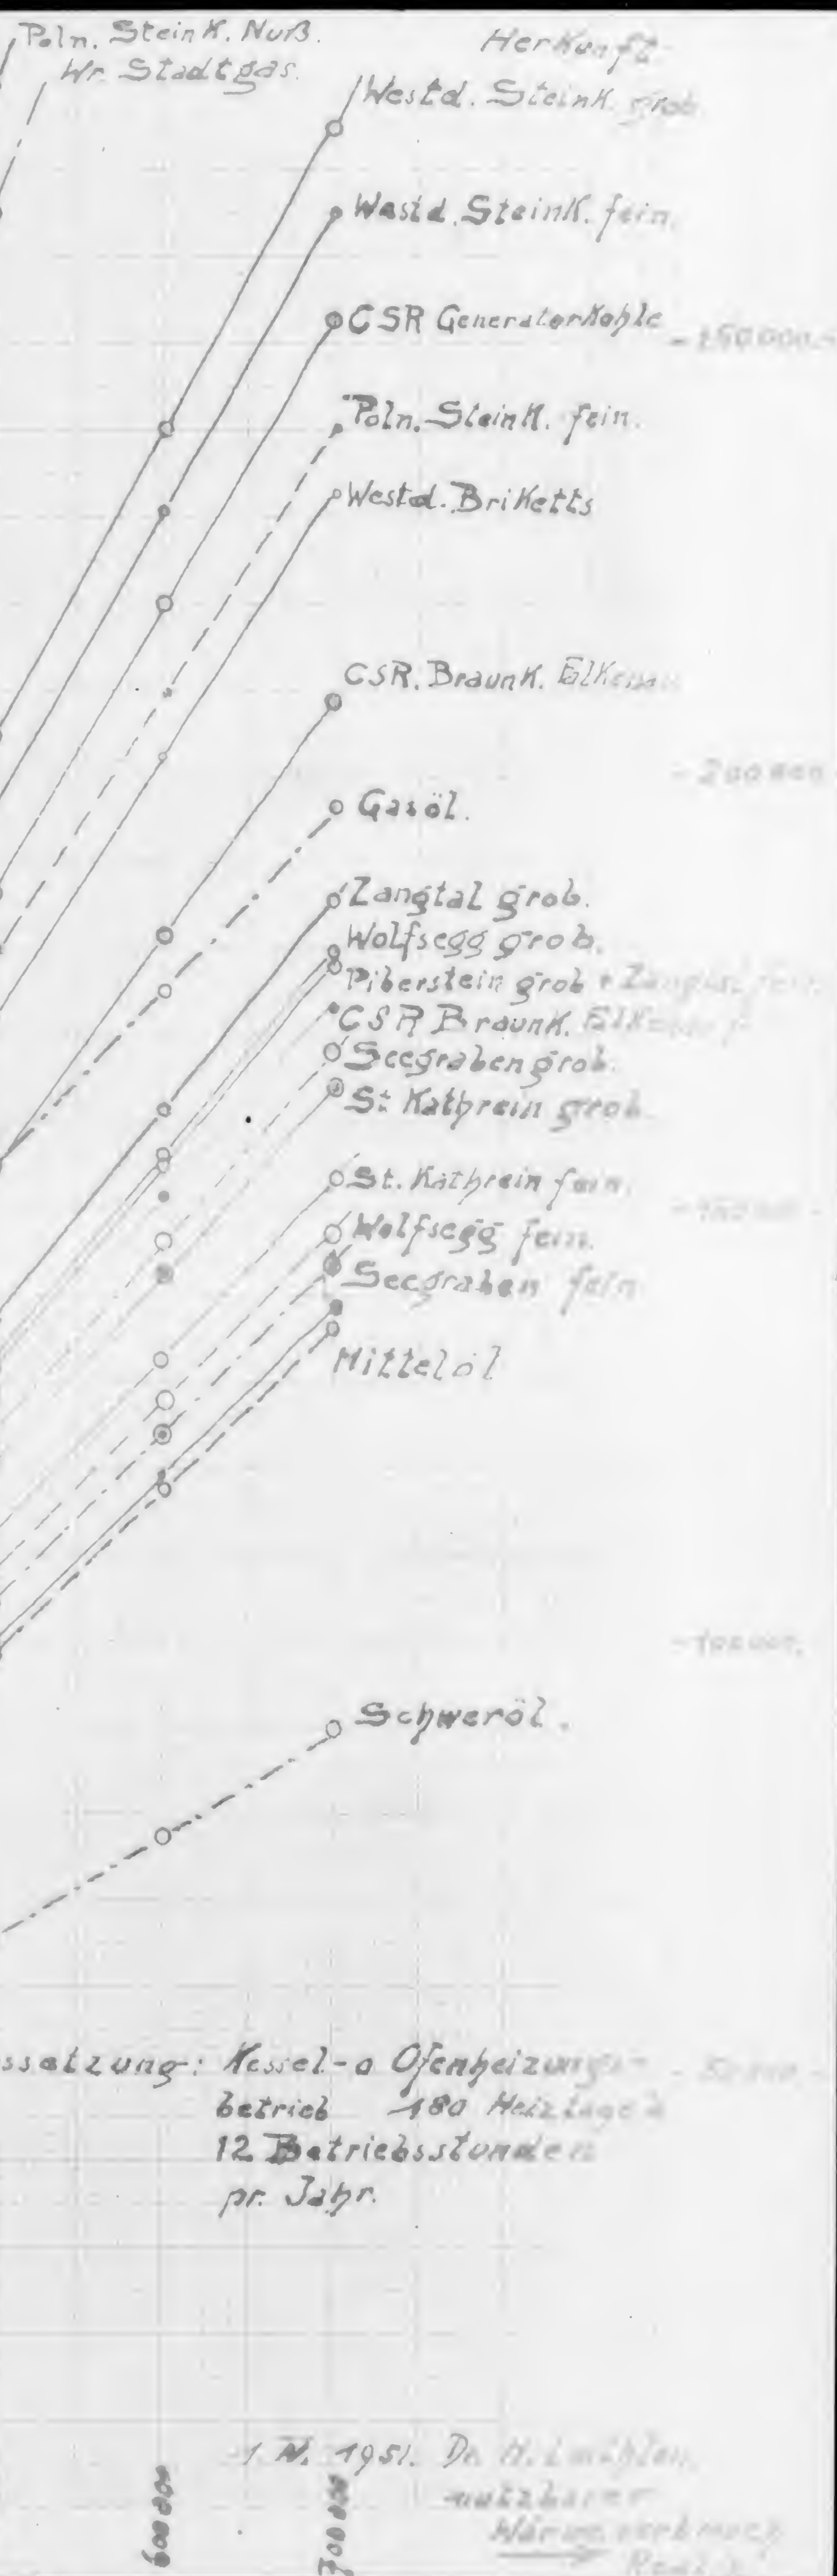 Poln. Steink. Nuß.
Herkunft
Wr. Stadtgas.
Westd. Steink. grob
Westd. Steink. fein.
CSR Generatorkohle
- 250 000.-
Poln. Steink. fein.
Westd. Briketts
CSR. Braunk. Falkenau
- 200 000
Gasöl.
Zangtal grob.
Wolfsegg grob.
Piberstein grob + Zangtal
CSR Braunk. Falkenau
Seegraben grob.
St. Kathrein grob.
St. Kathrein fein.
Wolfsegg fein.
Seegraben fein
Mittelöl
- 100 000.
Schweröl.
ssetzung: Kessel- o Ofenheizungs-
betrieb 180 Heiztage à
12 Betriebsstunden
pr. Jahr.
1951. Dr. H.
nutzbarer
Wärmeverbrauch
600 000
700 000